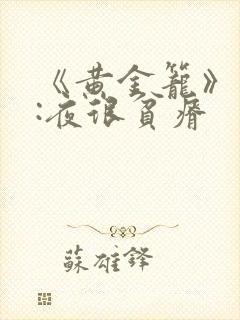 《黄金籠》
:夜很負瘠
蘇雄鋒